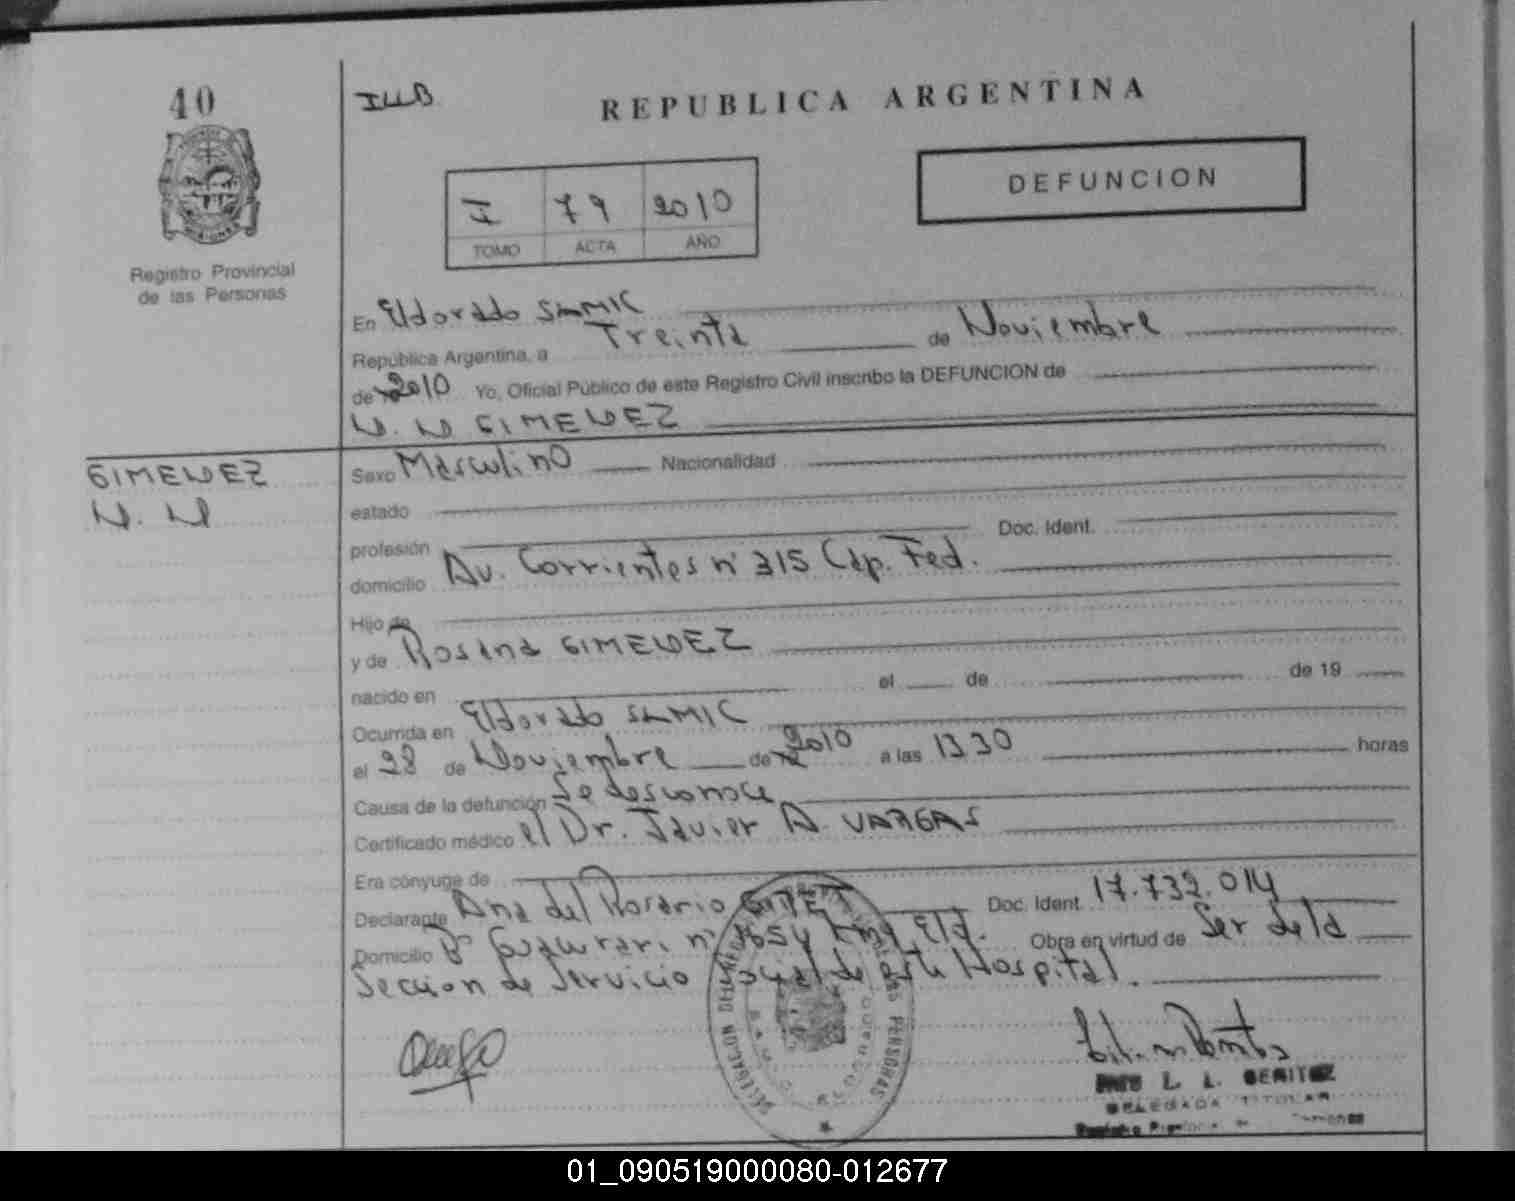 40
ILLB
REPUBLICA ARGENTINA
I 79 2010
TOMO ACTA AÑO
DEFUNCION
MISIONES
Registro Provincial
de las Personas
En Eldorado SAMIC
República Argentina, a Treinta de Noviembre
de 2010 Yo, Oficial Público de este Registro Civil inscribo la DEFUNCION de
N. N GIMENEZ
GIMENEZ
N. N
Sexo Masculino Nacionalidad
estado
profesión Doc. Ident.
domicilio Av. Corrientes nº 315 Cap. Fed.
Hijo de
y de Rosana GIMENEZ
nacido en el de de 19
Ocurrida en Eldorado SAMIC
el 28 de Noviembre de 2010 a las 13 30 horas
Causa de la defunción Se desconoce
Certificado médico el Dr. Javier A. VARGAS
Era cónyuge de
Declarante Ana del Rosario Doc. Ident. 17.732.014
Domicilio Bº Guaurari nº 1654 km 9 Eld. Obra en virtud de Ser de la
Seccion de Servicio Social de este Hospital.
DELEGACION DE LAS PERSONAS
L. L. BENITEZ
DELEGADA TITULAR
01_090519000080-012677